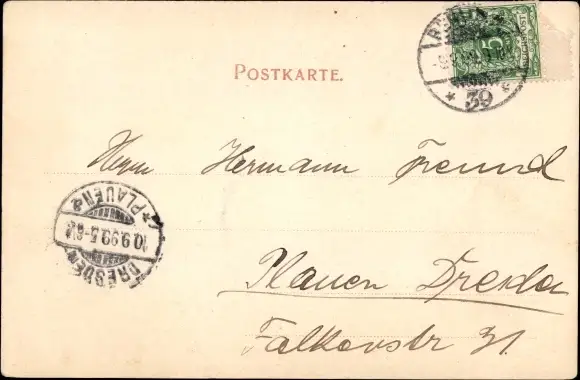 POSTKARTE.
5
REICHSPOST
39
Herrn Hermann Freund
PLAUEN
10.9.99.5-6N
DRESDEN
Plauen Dresden
Falkenstr 31.